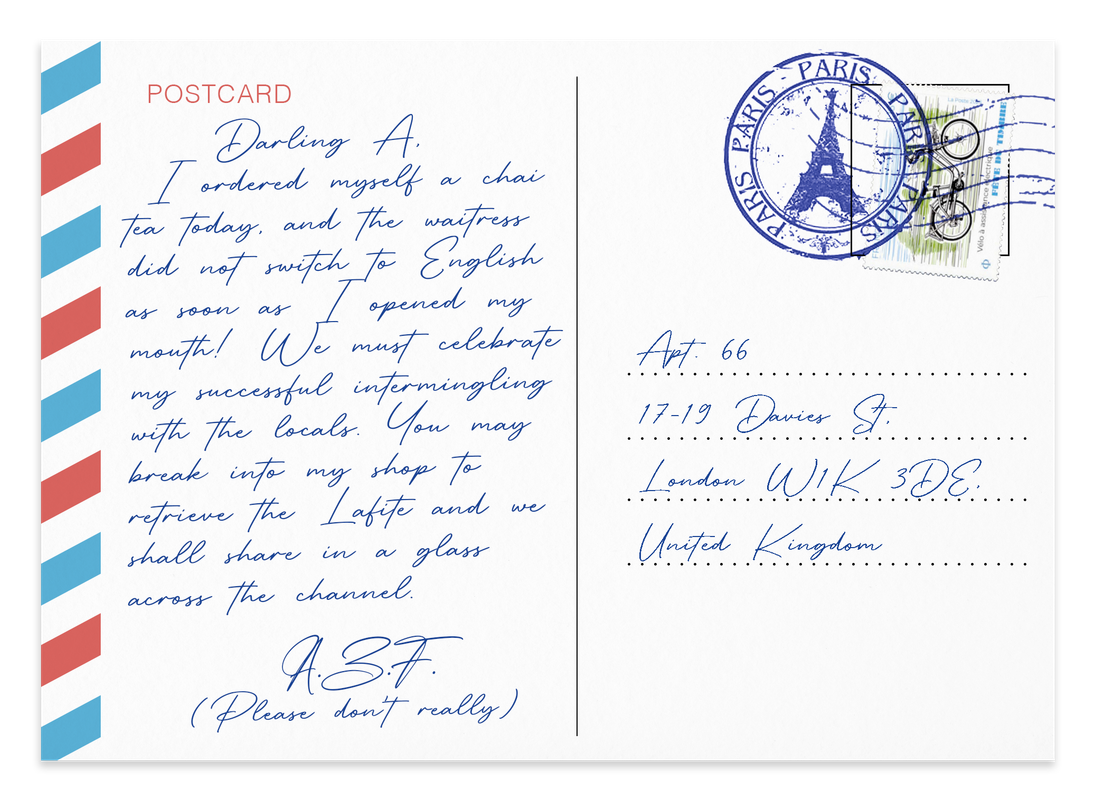 POSTCARD
Darling A,
I ordered myself a chai
tea today, and the waitress
did not switch to English
as soon as I opened my
mouth! We must celebrate
my successful intermingling
with the locals. You may
break into my shop to
retrieve the Lafite and we
shall share in a glass
across the channel.
A.Z.F.
(Please don't really)
PARIS PARIS PARIS PARIS PARIS
La Poste
FÊTE DU TIMBRE
Vélo à assistance électrique
Apt. 66
17-19 Davies St,
London W1K 3DE.
United Kingdom